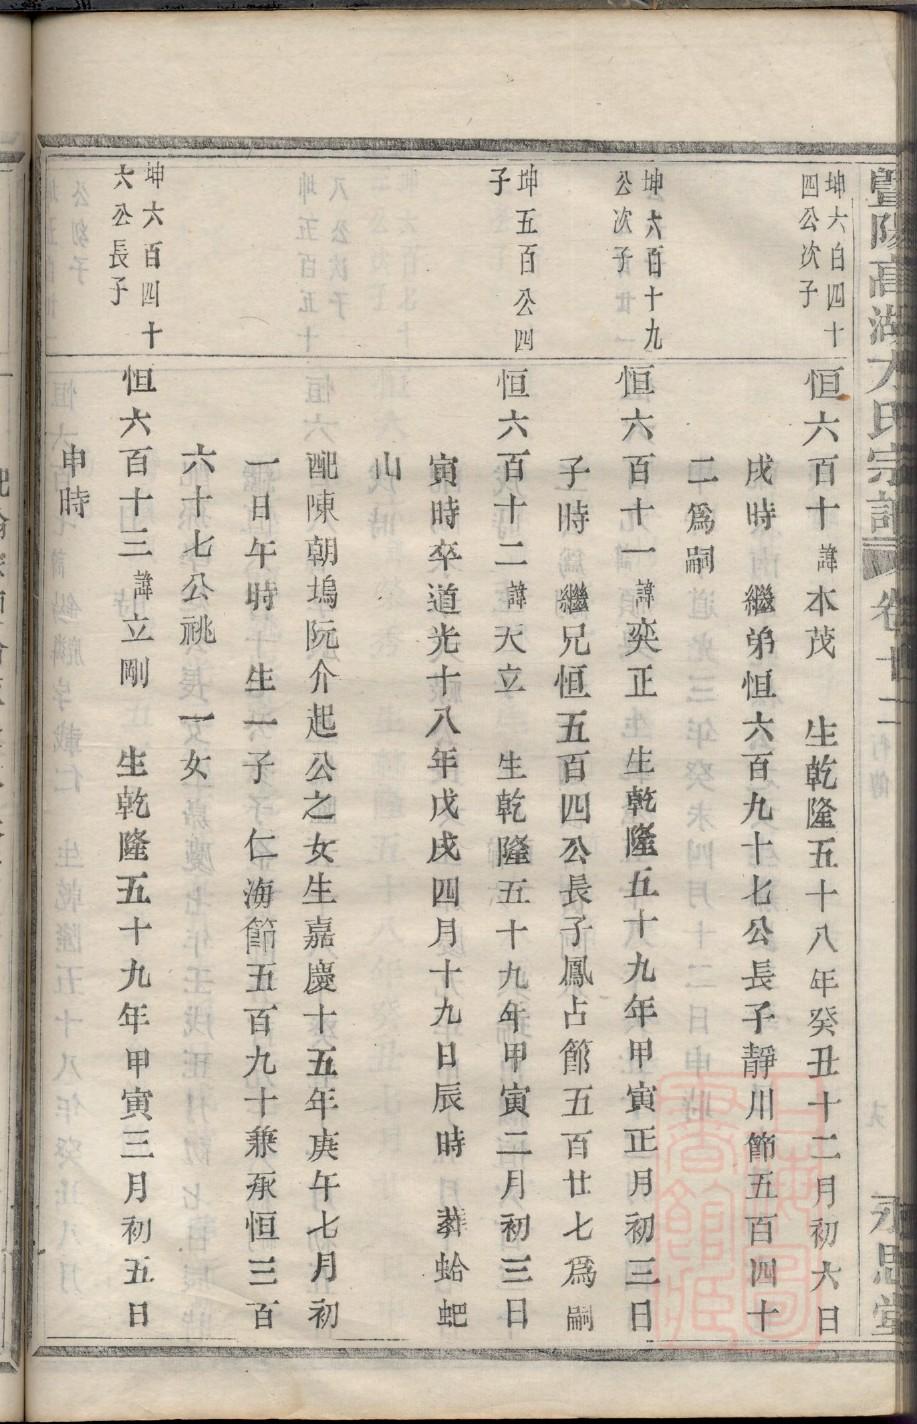 暨陽高湖方氏宗譜 卷廿二 行傳
永思堂
坤六百四十
四公次子
恒六百十 諱本茂 生乾隆五十八年癸丑十二月初六日
戌時 繼弟恒六百九十七公長子靜川節五百四十
二為嗣
坤六百十九
公次子
恒六百十一 諱奕正 生乾隆五十九年甲寅正月初三日
子時 繼兄恒五百四公長子鳳占節五百廿七為嗣
坤五百公四
子
恒六百十二 諱天立 生乾隆五十九年甲寅二月初三日
寅時卒道光十八年戊戌四月十九日辰時 葬蛤蚆
山
配陳朝塢阮介起公之女生嘉慶十五年庚午七月初
一日午時 生一子 仁海節五百九十兼承恒三百
六十七公祧 一女
坤六百四十
六公長子
恒六百十三 諱立剛 生乾隆五十九年甲寅三月初五日
申時